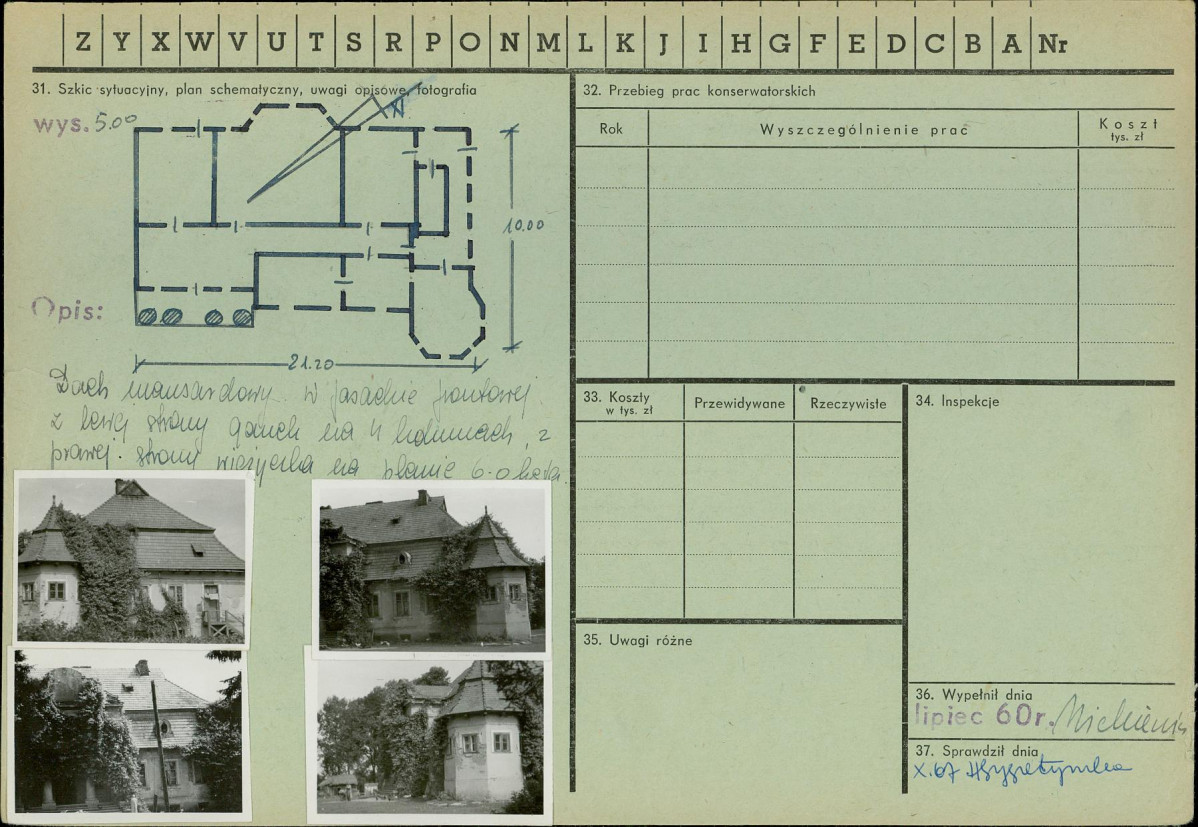 Z Y X W V U T S R P O N M L K J I H G F E D C B A Nr
31. Szkic sytuacyjny, plan schematyczny, uwagi opisowe, fotografia
N
wys. 5.00
10.00
Opis:
21.20
Dach mansardowy. W fasadzie frontowej
z lewej strony ganek na 4 kolumnach, z
prawej strony wieżyczka na planie 6-o boku.
32. Przebieg prac konserwatorskich
Rok Wyszczególnienie prac Koszt
tys. zł
33. Koszty
w tys. zł
Przewidywane Rzeczywiste
34. Inspekcje
35. Uwagi różne
36. Wypełnił dnia
lipiec 60r.
37. Sprawdził dnia
X.67